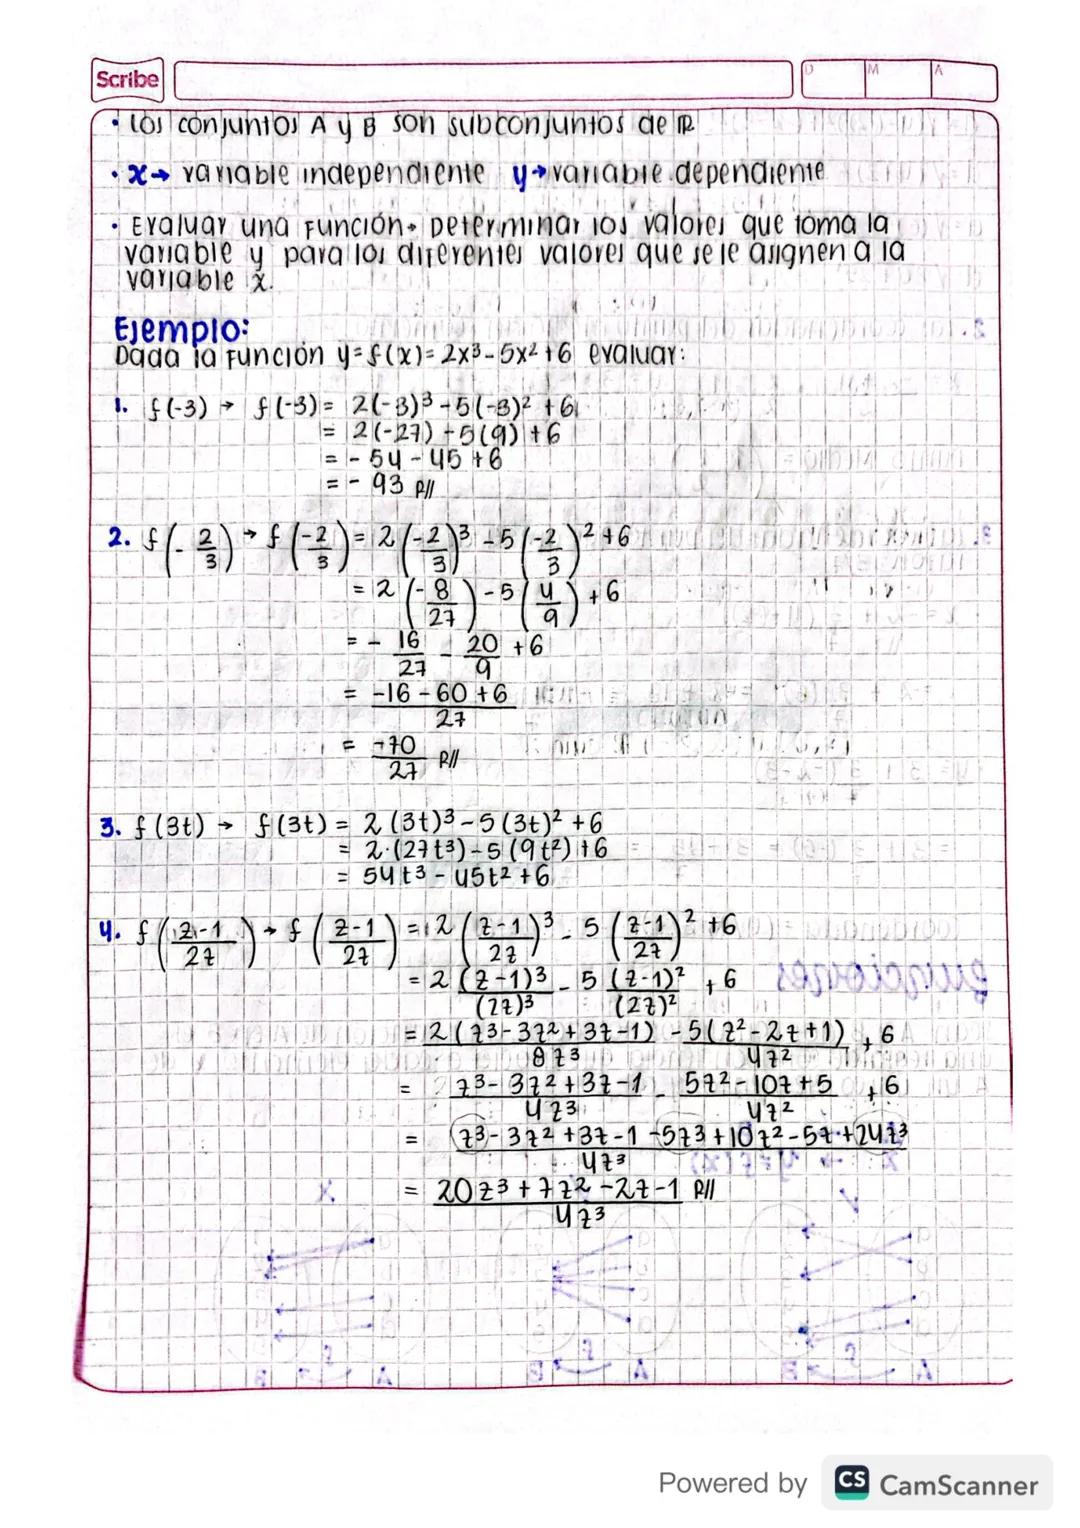 Scribe
D M A
• Los conjuntos A y B son subconjuntos de ℝ
• x→ variable independiente y→variable dependiente
• Evaluar una función→ Determinar los valores que toma la
variable y para los diferentes valores que se le asignen a la
variable x.
Ejemplo:
Dada la función y=f(x)= 2x³-5x²+6 evaluar:
1. f(-3) → f(-3)= 2(-3)³-5(-3)²+6
= 2(-27)-5(9)+6
= -54-45+6
= -93 R//
2. f(-2/3) → f(-2/3)= 2(-2/3)³-5(-2/3)²+6
= 2(-8/27)-5(4/9)+6
= -16/27 - 20/9 +6
= -16-60+6/27
= -70/27 R//
3. f(3t) → f(3t)= 2(3t)³-5(3t)²+6
= 2·(27t³)-5(9t²)+6
= 54t³-45t²+6
4. f(z-1/2z) → f(z-1/2z) = 2(z-1/2z)³ - 5(z-1/2z)² +6
= 2 (z-1)³/(2z)³ - 5 (z-1)²/(2z)² +6
= 2(z³-3z²+3z-1)/8z³ - 5(z²-2z+1)/4z² +6
= z³-3z²+3z-1/4z³ - 5z²-10z+5/4z² +6
= z³-3z²+3z-1-5z³+10z²-5z+24z³/4z³
= 20z³+7z²-2z-1/4z³ R//
Powered by CS CamScanner